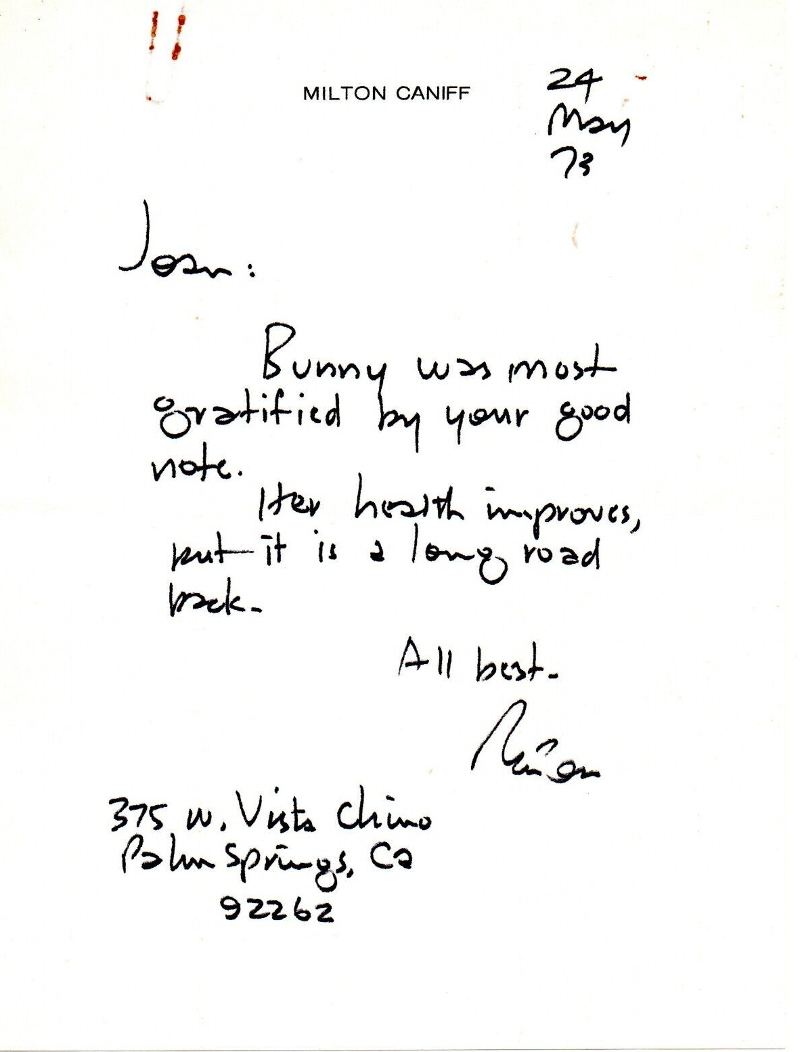 MILTON CANIFF
24
May
73
Joan:
Bunny was most
gratified by your good
note.
Her health improves,
but it is a long road
back.
All best.
Milton
375 W. Vista Chino
Palm Springs, Ca
92262